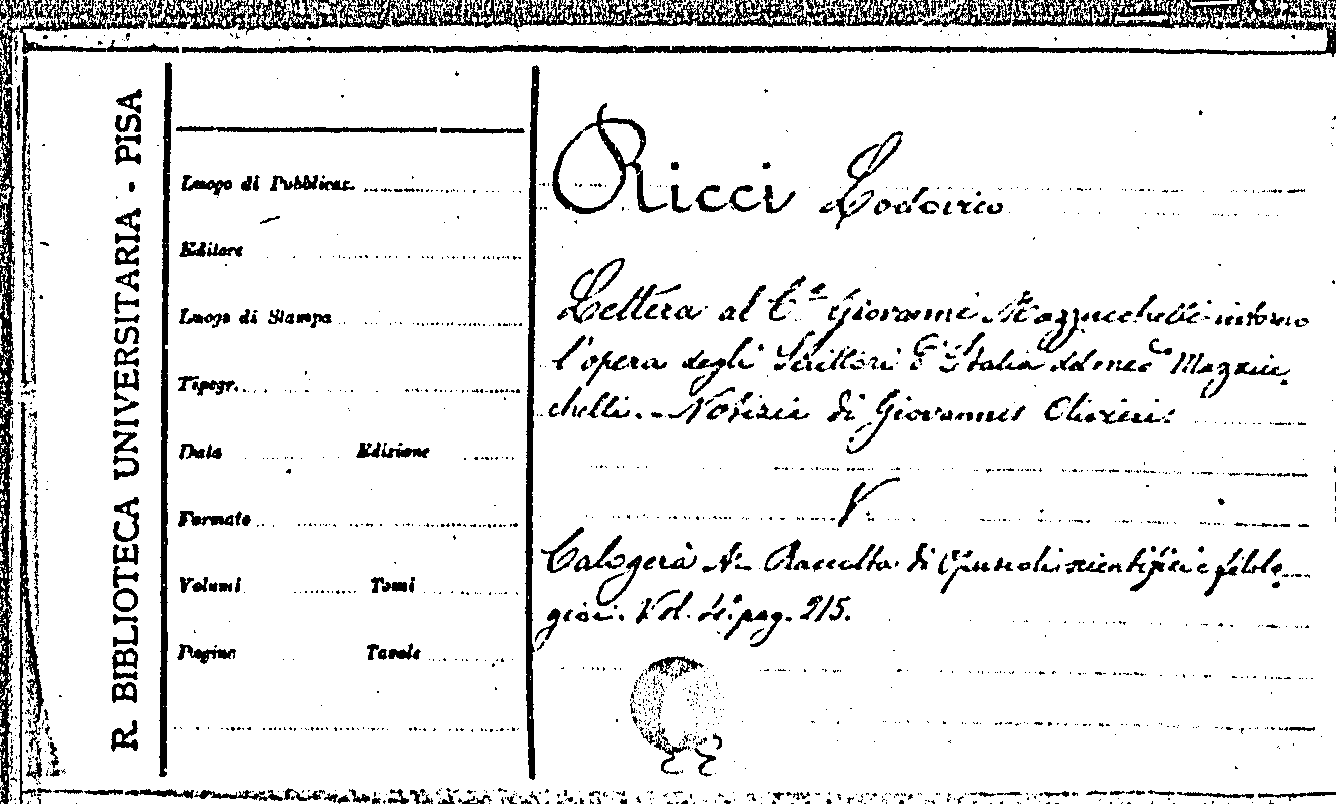 R. BIBLIOTECA UNIVERSITARIA - PISA
Luogo di Pubblicaz.
Editore
Luogo di Stampa
Tipogr.
Data Edizione
Formato
Volumi Tomi
Pagine Tavole
Ricci Lodovico
Lettera al C.te Giovanni Mazzucchelli intorno
l'opera degli Scrittori d'Italia del med.o Mazzuc-
chelli. - Notizie di Giovannis Olivieri:
V.
Calogerà A. - Raccolta di Opuscoli scientifici e filolo-
gici. Vol. 4.° pag. 215.